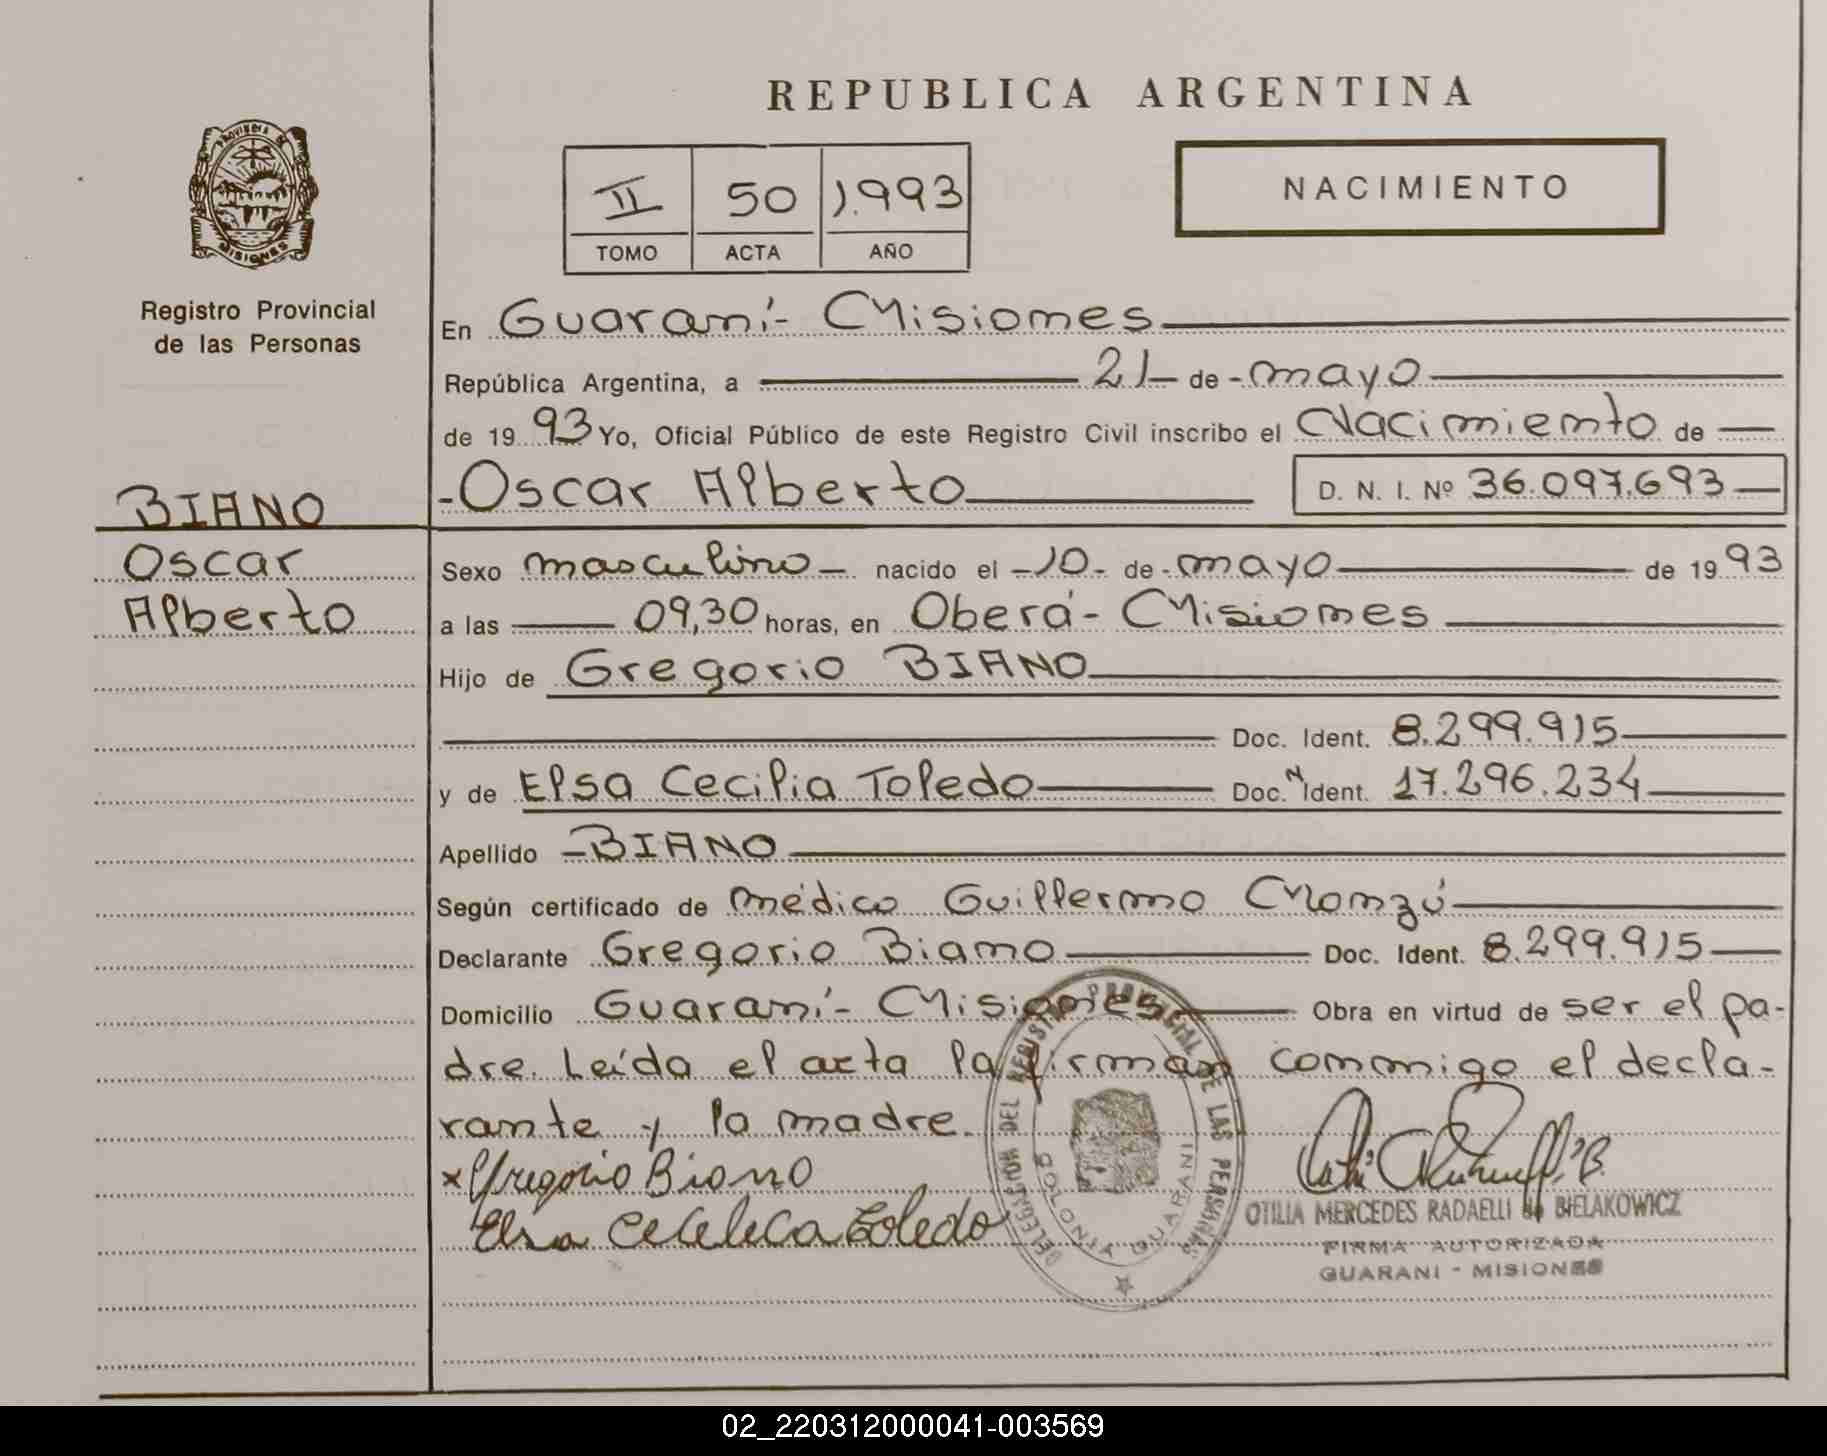 REPUBLICA ARGENTINA
PROVINCIA DE MISIONES
II 50 1.993
TOMO ACTA AÑO
NACIMIENTO
Registro Provincial
de las Personas
BIANO
Oscar
Alberto
En Guaraní- Misiones
República Argentina, a 21 de mayo
de 19 93 Yo, Oficial Público de este Registro Civil inscribo el Nacimiento de
Oscar Alberto D. N. I. Nº 36.097.693
Sexo masculino nacido el 10 de mayo de 19 93
a las 09,30 horas, en Oberá- Misiones
Hijo de Gregorio BIANO
Doc. Ident. 8.299.915
y de Elsa Cecilia Toledo Doc. N Ident. 17.296.234
Apellido BIANO
Según certificado de médico Guillermo Monzú
Declarante Gregorio Biano Doc. Ident. 8.299.915
Domicilio Guaraní- Misiones Obra en virtud de ser el pa-
dre. Leída el acta la firman conmigo el decla-
rante y la madre.
x Gregorio Biano
Elsa Cecelica Toledo
DELEGACION DEL REGISTRO PROVINCIAL DE LAS PERSONAS
COLONIA GUARANI
OTILIA MERCEDES RADAELLI de BIELAKOWICZ
FIRMA AUTORIZADA
GUARANI - MISIONES
02_220312000041-003569